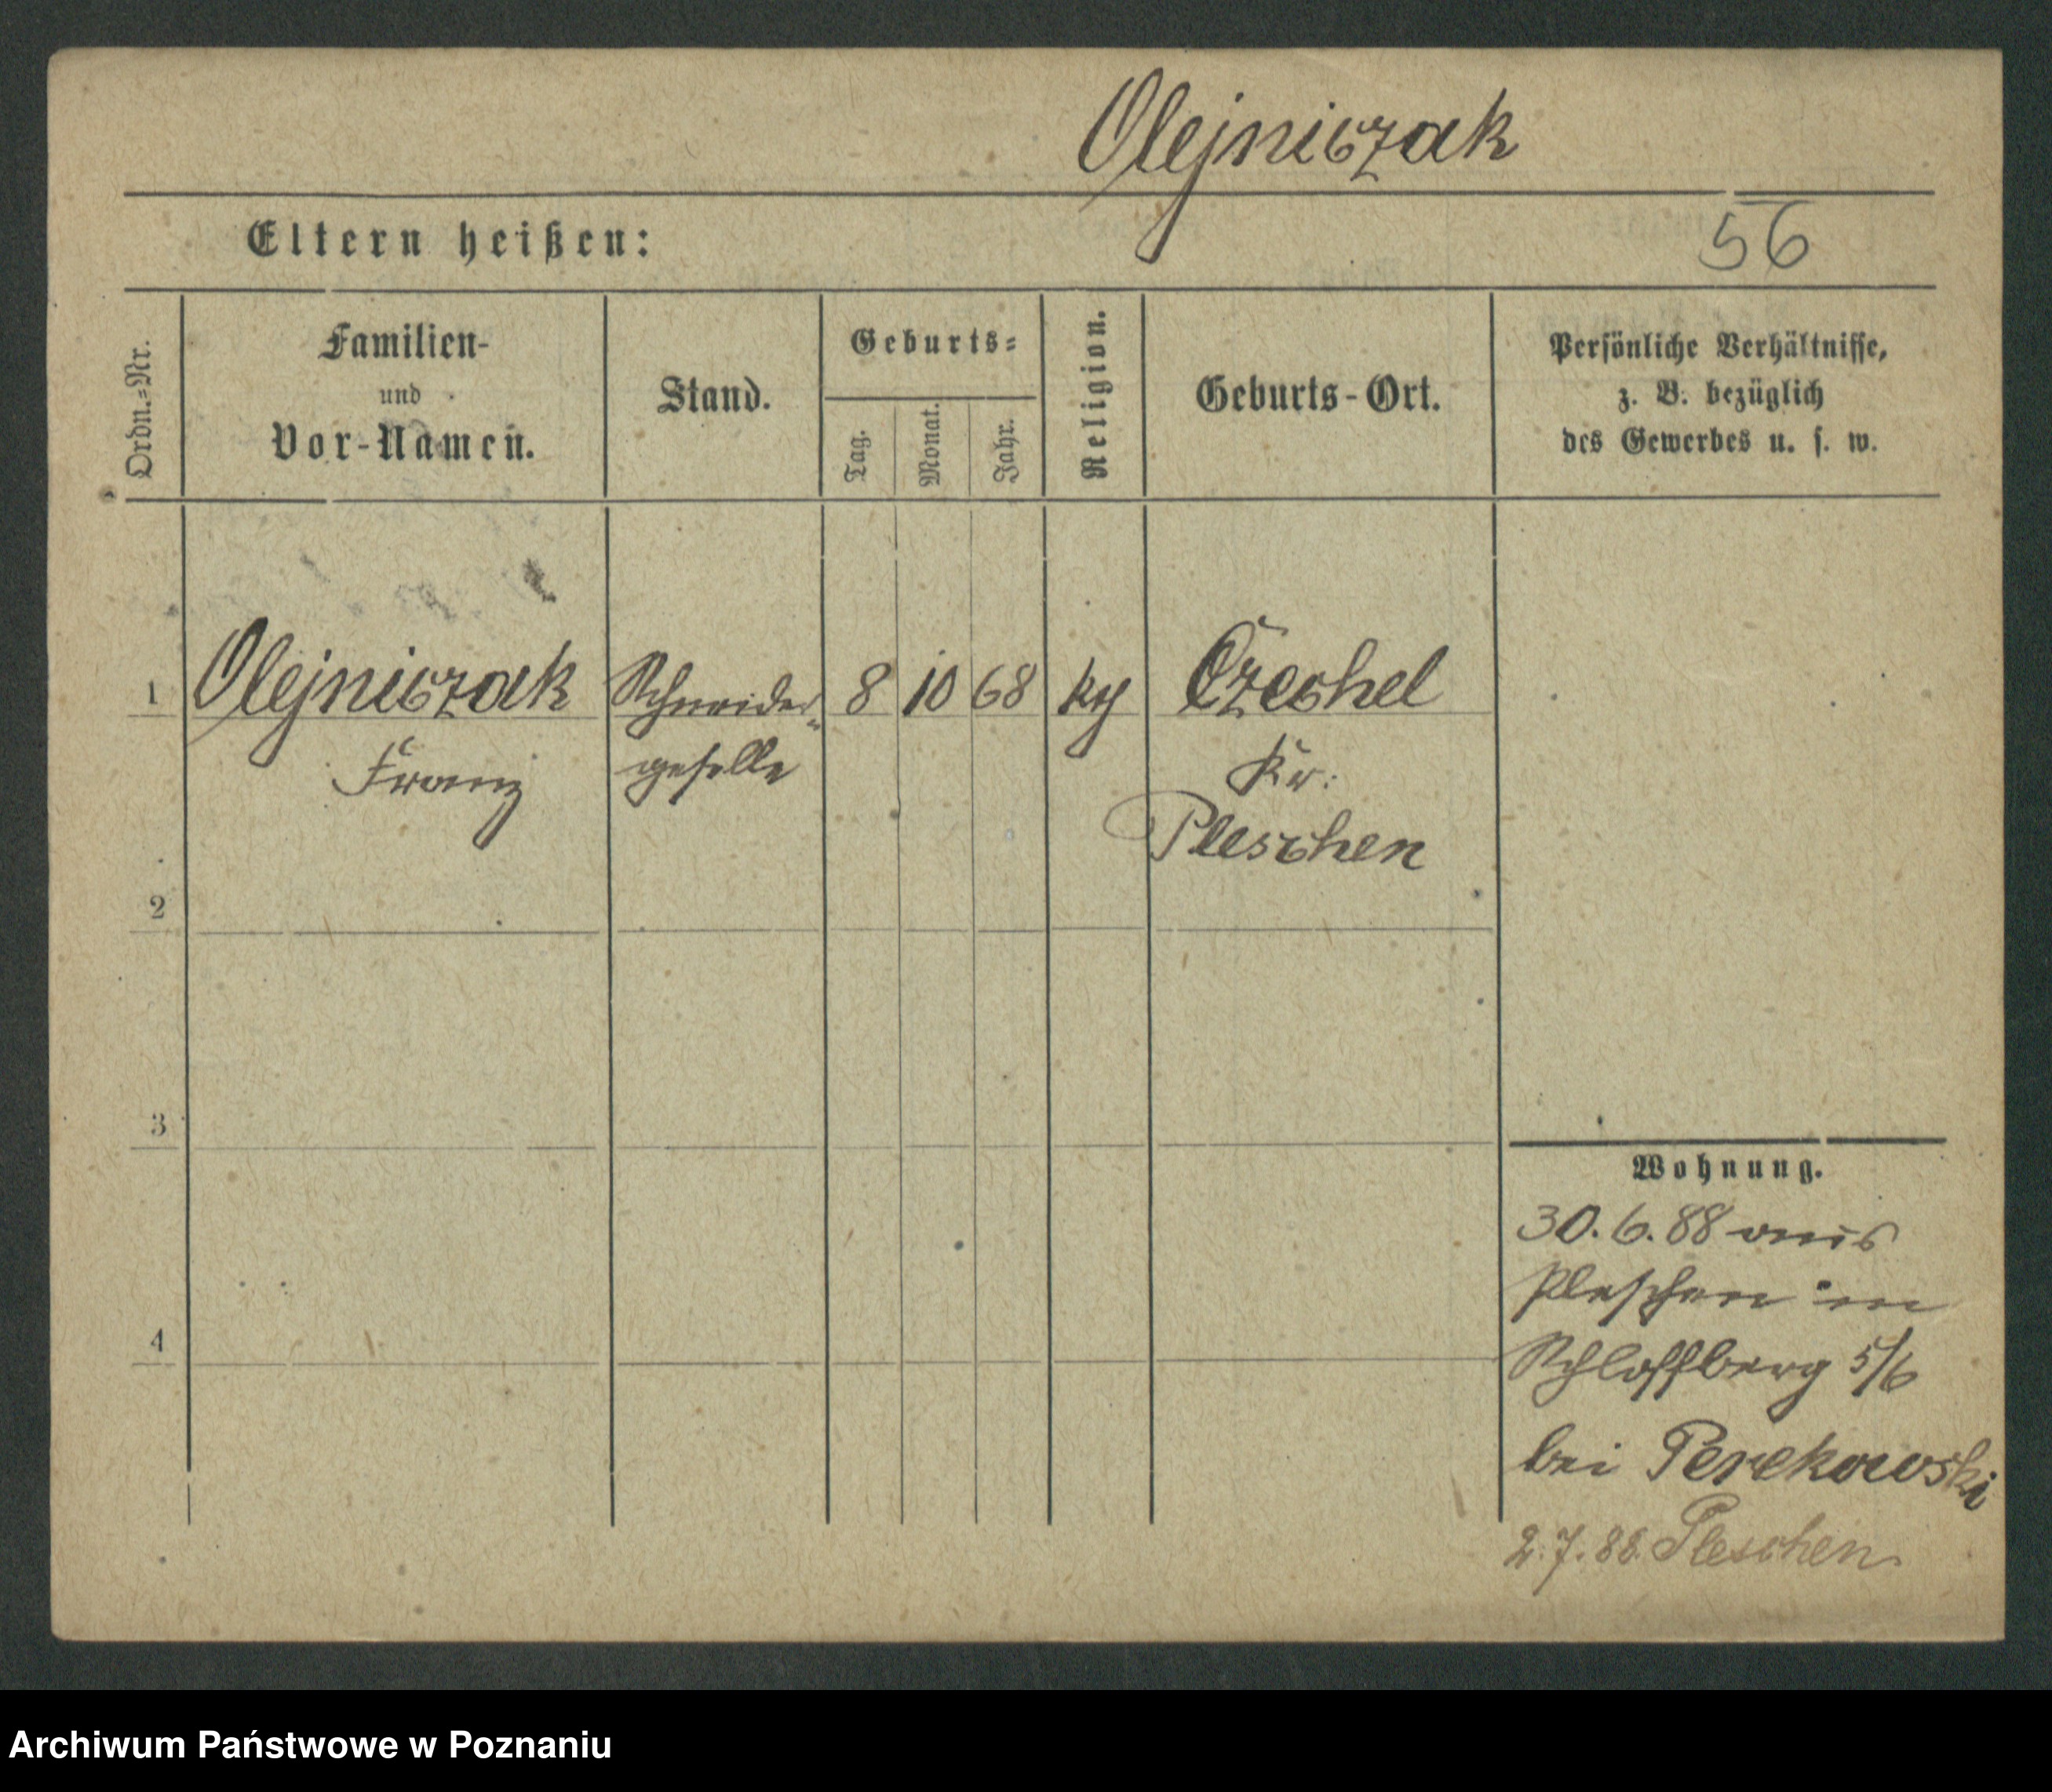 Olejniczak
Eltern heißen:
56
Ordn.=Nr.
Familien-
und
Vor-Namen.
Stand.
Geburts=
Tag.
Monat.
Jahr.
Religion.
Geburts-Ort.
Persönliche Verhältnisse,
z. B. bezüglich
des Gewerbes u. s. w.
1
Olejniczak
Franz
Schneider-
geselle
8
10
68
Czechel
Kr:
Pleschen
2
3
4
Wohnung.
30. 6. 88 aus
Pleschen in
Schlossberg 5/6
bei
2. 7. 88. Pleschen
Archiwum Państwowe w Poznaniu